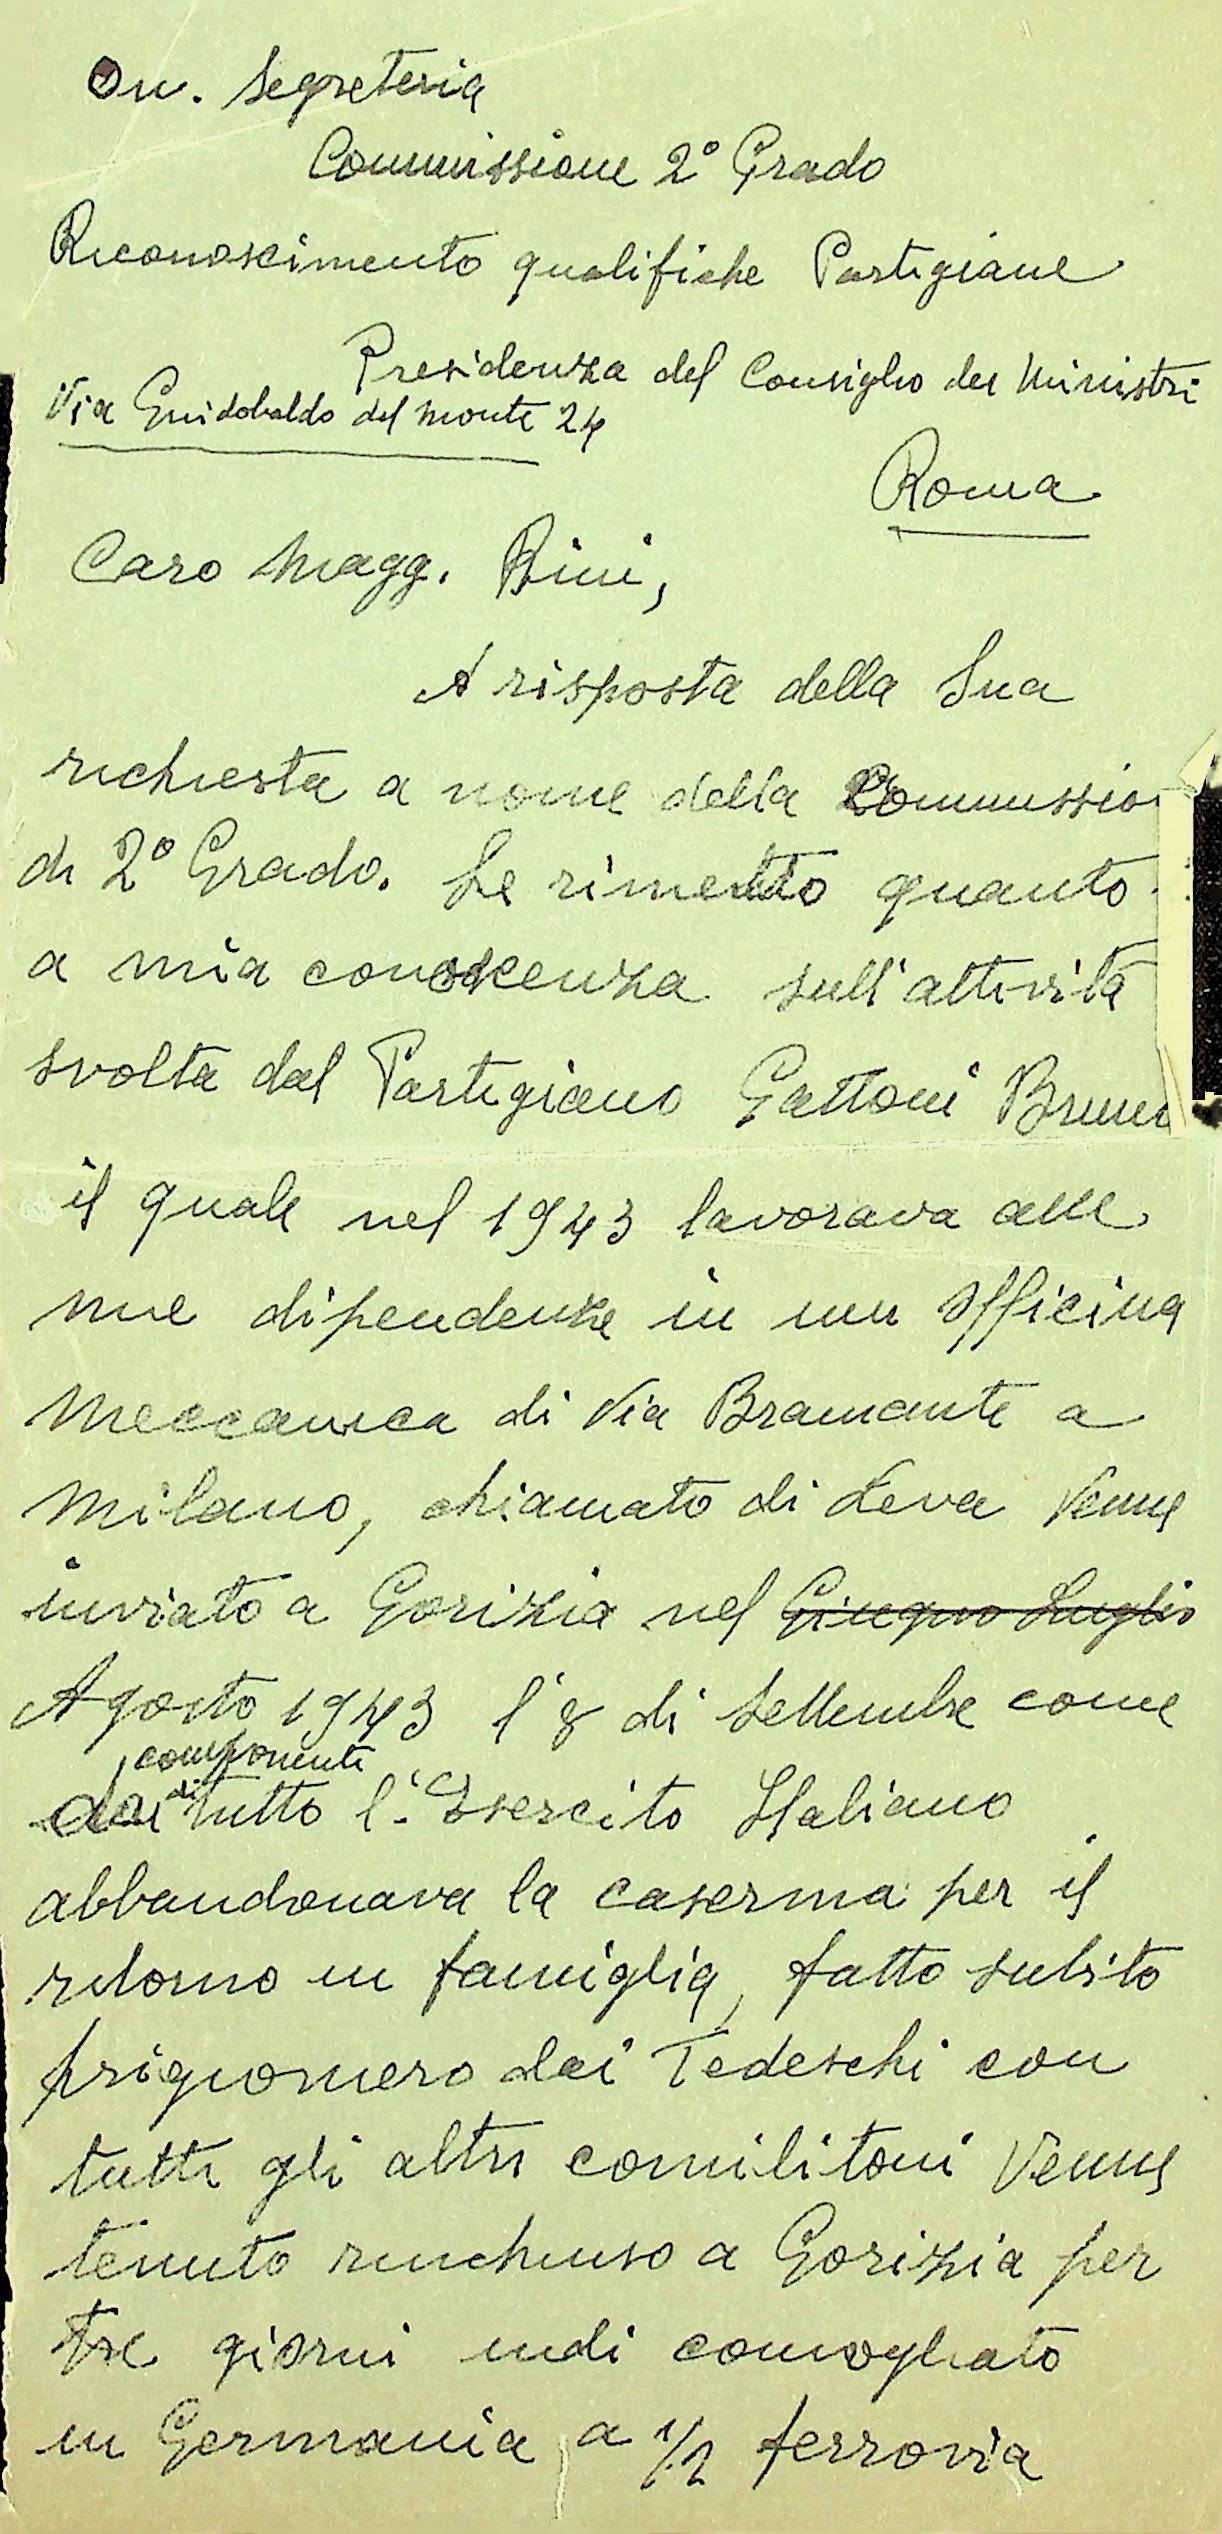 On. Segreteria
Commissione 2° Grado
Riconoscimento qualifiche Partigiane
Presidenza del Consiglio dei Ministri
Via Guidobaldo del Monte 24
Roma
Caro Magg. Bini,
A risposta della Sua
richiesta a nome della Commission
di 2° Grado. Le rimetto quanto
a mia conoscenza sull'attività
svolta dal Partigiano Gattoni Brun
il quale nel 1943 lavorava alle
mie dipendenze in un officina
Meccanica di Via Bramante a
Milano, chiamato di Leva Venne
inviato a Gorizia nel Giugno Luglio
Agosto 1943 l'8 di Settembre come
componente
di tutto l'Esercito Italiano
abbandonava la caserma per il
ritorno in famiglia, fatto subito
prigioniero dai Tedeschi con
tutti gli altri comilitoni Venne
tenuto rinchiuso a Gorizia per
tre giorni indi convogliato
in Germania a 1/2 ferrovia